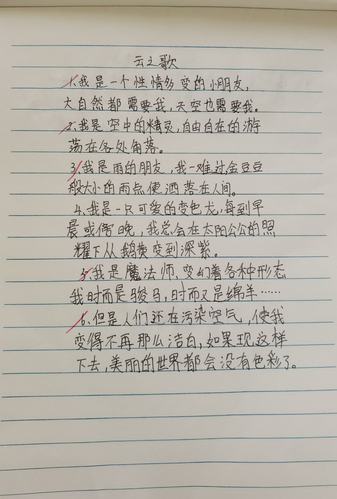 云之歌
1.我是一个性情多变的小朋友,
大自然都需要我,天空也需要我。
2.我是空中的精灵,自由自在的游
荡在各处角落。
3.我是雨的朋友,我一难过金豆豆
般大小的雨点便洒落在人间。
4.我是一只可爱的变色龙,每到早
晨或傍晚,我总会在太阳公公的照
耀下从鹅黄变到深紫。
5.我是魔法师.变幻着各种形态
我时而是骏马,时而又是绵羊……
6.但是人们还在污染空气,使我
变得不再那么洁白,如果现这样
下去,美丽的世界都会没有色彩了。